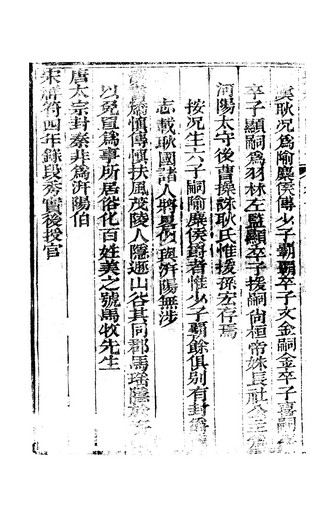 漢耿况為隃麋侯傳少子霸霸卒子文金嗣金卒子喜嗣喜
卒子顯嗣為羽林左監顯卒子援嗣尚桓帝妹長社公主為
河陽太守後曹操誅耿氏惟援孫宏存焉
按况生六子嗣隃麋侯爵者惟少子霸餘俱别有封爵
志載耿國諸人將畧似與汧陽無涉
慎傳慎扶風茂陵人隱遯山谷其同郡馬瑤隱於
以兔罝為事所居俗化百姓美之號馬牧先生
唐太宗封秦非為汧陽伯
宋祥符四年錄段秀實後授官